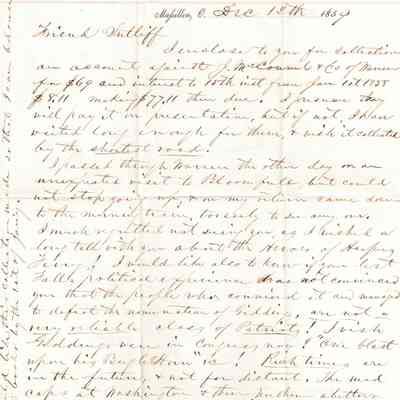 Massillon, O. Dec 13th 1859
Friend Sutliff
I enclose to you for collection
an account against J. McConnell & Co of Warren
for $69 and interest to 10th inst from Jan 1st 1858
$8.11 making $77.11 then due. I presume they
will pay it on presentation, but if not, I have
waited long enough for them, & wish it collected
by the shortest road.
I passed through Warren the other day on an
unexpected visit to Bloomfield, but could
not stop going up, & on my return came down
to the morning train, too early to see any one.
I much regretted not seeing you, as I wished a
long talk with you about the Heroes of Harpers
Ferry! I would like also to know if your last
Falls political experience has not convinced
you that the people who connived it and managed
to defeat the nomination of Giddings, are not a
very reliable class of Patriots! I wish
Giddings were in Congress now! "One blast
upon his Bugle Horn" &c! Rich times are
in the future, & not far distant. The mad
caps at Washington & their Northern abettors